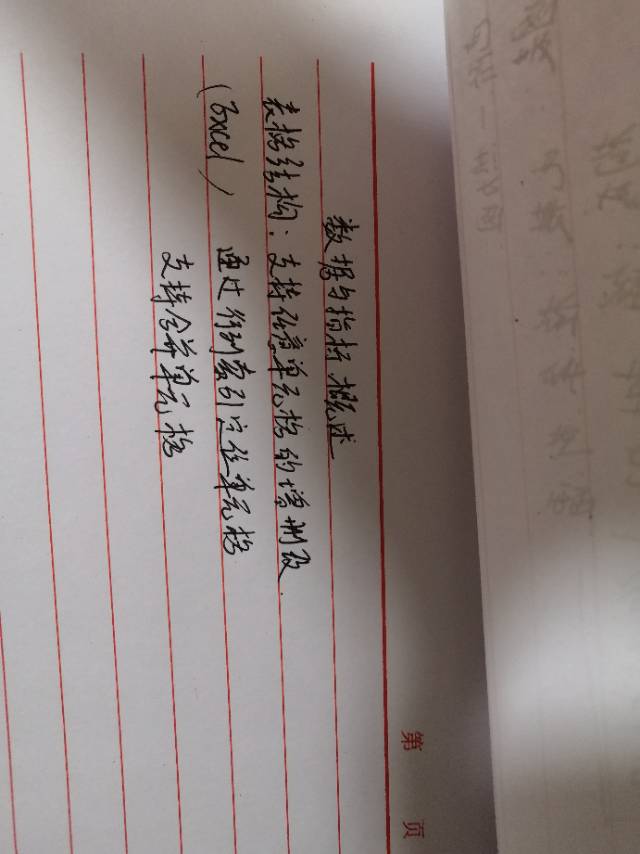 第 页
数据与指标概述
表格结构：支持任意单元格的增删改
(Excel) 通过行列索引定位单元格
支持合并单元格